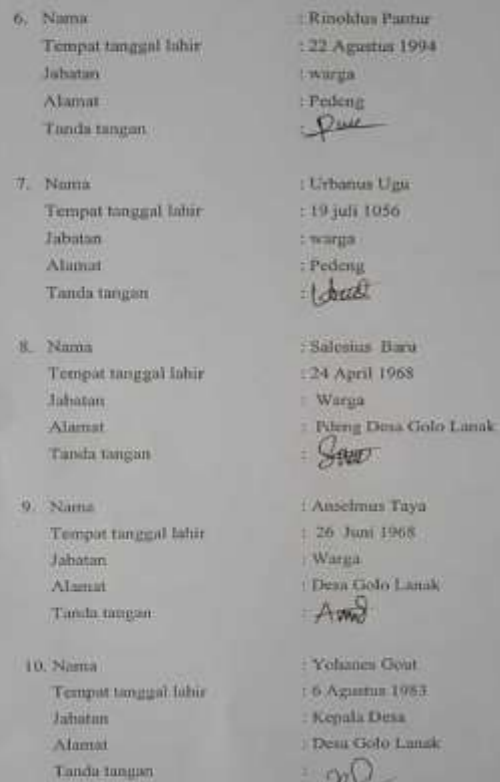 6. Nama : Rinoldus Pantur
Tempat tanggal lahir : 22 Agustus 1994
Jabatan : warga
Alamat : Pedeng
Tanda tangan :
7. Nama : Urbanus Ugu
Tempat tanggal lahir : 19 juli 1056
Jabatan : warga
Alamat : Pedeng
Tanda tangan :
8. Nama : Salesius Baru
Tempat tanggal lahir : 24 April 1968
Jabatan : Warga
Alamat : Pdeng Desa Golo Lanak
Tanda tangan :
9. Nama : Anselmus Taya
Tempat tanggal lahir : 26 Juni 1968
Jabatan : Warga
Alamat : Desa Golo Lanak
Tanda tangan :
10. Nama : Yohanes Gout
Tempat tanggal lahir : 6 Agustus 1983
Jabatan : Kepala Desa
Alamat : Desa Golo Lanak
Tanda tangan :